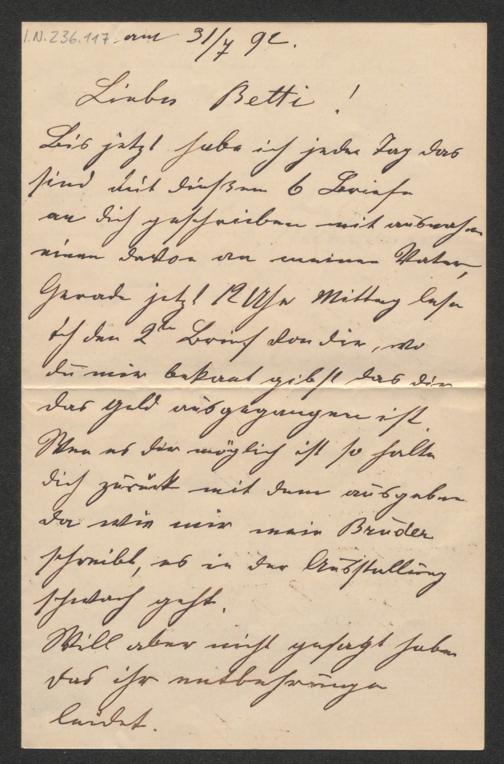 I.N. 236.117 am 31/7 92.
Liebes Betti!
Bis jetzt habe ich jeden Tag das
sind mit diesem 6 Briefe
an dich geschrieben mit ausnahme
einen davon an meinen Vater,
Gerade jetzt 12 Uhr Mittag lese
ich den 2ten Brief von dir, wo
du mir bekant gibst das dir
das Geld ausgegangen ist.
Wen es dir möglich ist so halte
dich zurück mit dem ausgeben
da wie mir mein Bruder
schreibt, es in der Ausstellung
schwach geht.
Will aber nicht gesagt haben
das ihr entbehrunge
leidet.